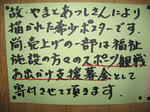 故・やまとあつしさんにより
描かれた希少ポスターです。
尚、売上げの一部は福祉
施設の方々のスポーツ観戦
あゆかけ支援募金として
寄付させて頂きます。